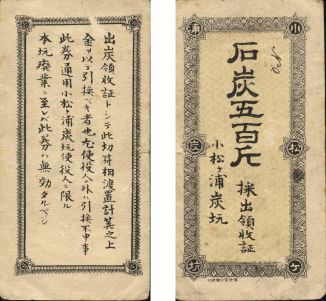 出炭領收証トシテ此切符相渡置計算之上
金ヲ以テ引換ベキ者也尤使役人之外ハ引換不申事
此券通用小松ヶ浦炭坑使役人ニ限ル
本坑廃業ニ至レバ此券ハ無効タルベシ
小
松
ケ
浦
炭
坑
石炭五百斤
採出領收証
小松ヶ浦炭坑